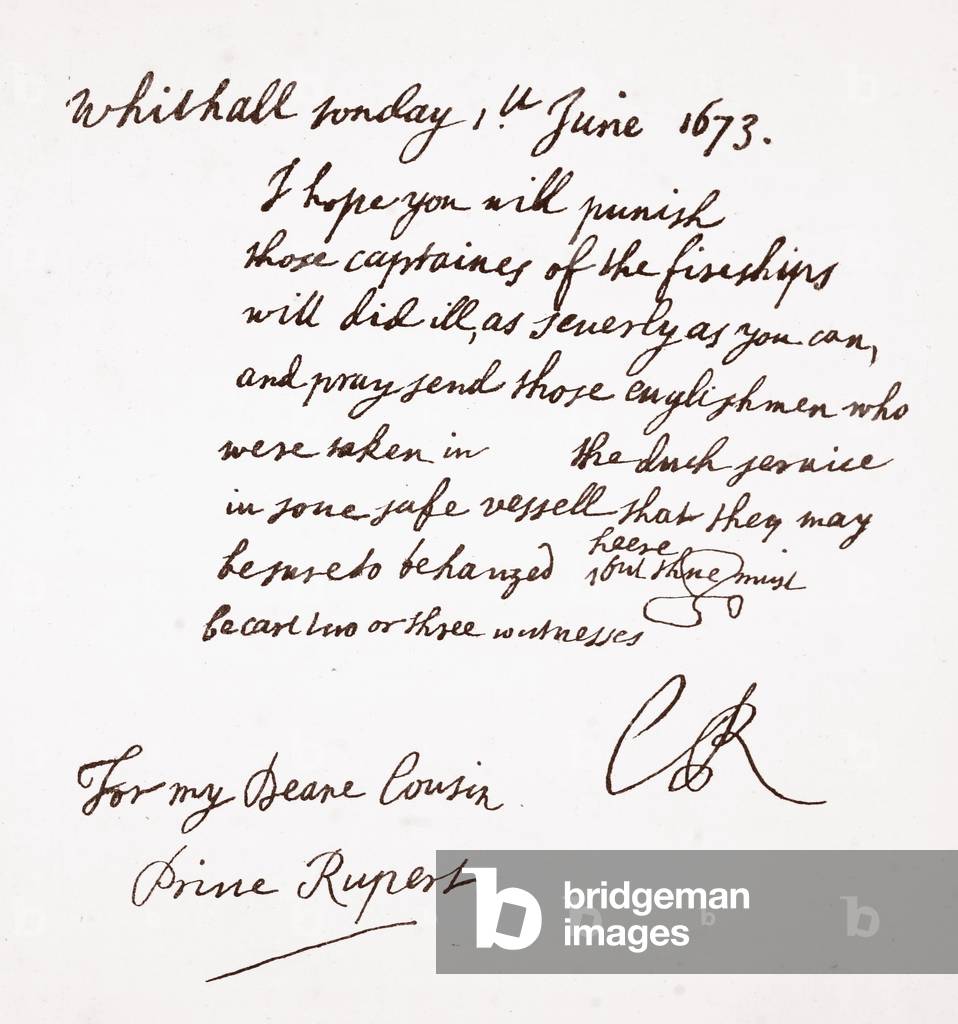 Whithall sonday 1st June 1673.
I hope you will punish
those captaines of the fireships
will did ill, as severly as you can,
and pray send those englishmen who
were taken in the duch service
in some safe vessell that they may
heere
be sure to be hanged but there must
be att two or three witnesses
CR
For my Deare Cousin
Prince Rupert
b bridgeman
images